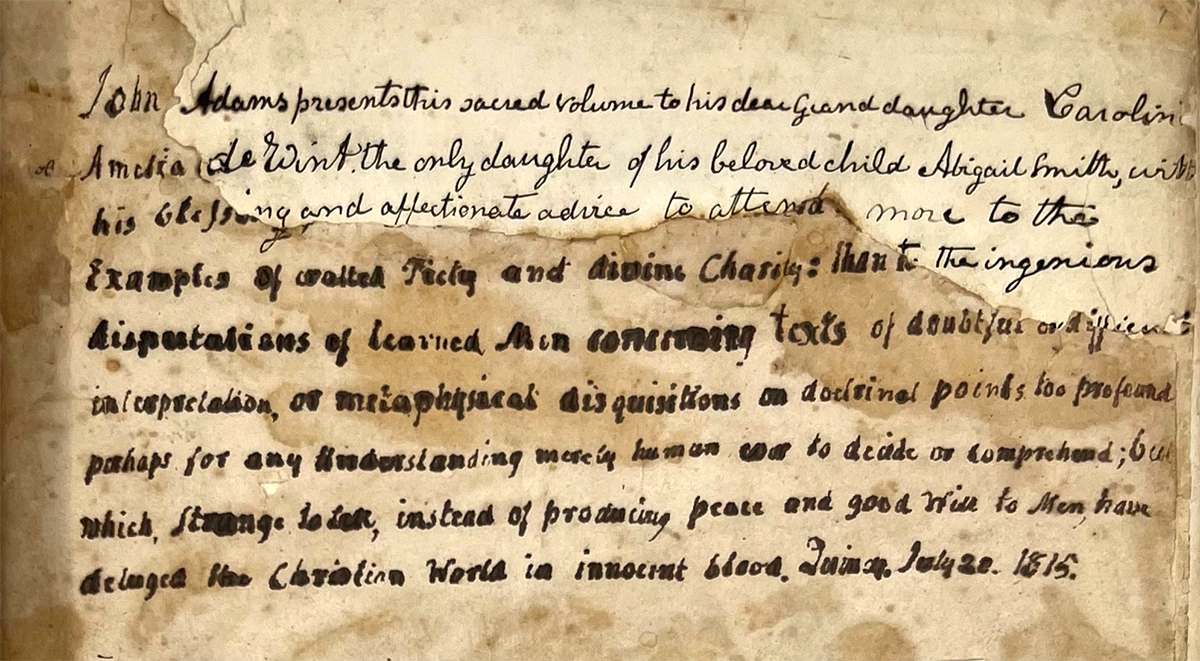 John Adams presents this sacred volume to his dear Grand daughter Carolin
Amelia de Wint. the only daughter of his beloved child Abigail Smith, with
his blessing and affectionate advice to attend more to the
Examples of exalted Piety and divine Charity: than to the ingenious
disputations of learned Men concerning texts of doubtful or difficult
interpretation, or metaphysical disquisitions on doctrinal points too profound
perhaps for any Understanding merely human ever to decide or comprehend; but
which, strange to tell, instead of producing peace and good Will to Men, have
deluged the Christian World in innocent blood. Quincy. July 20. 1815.